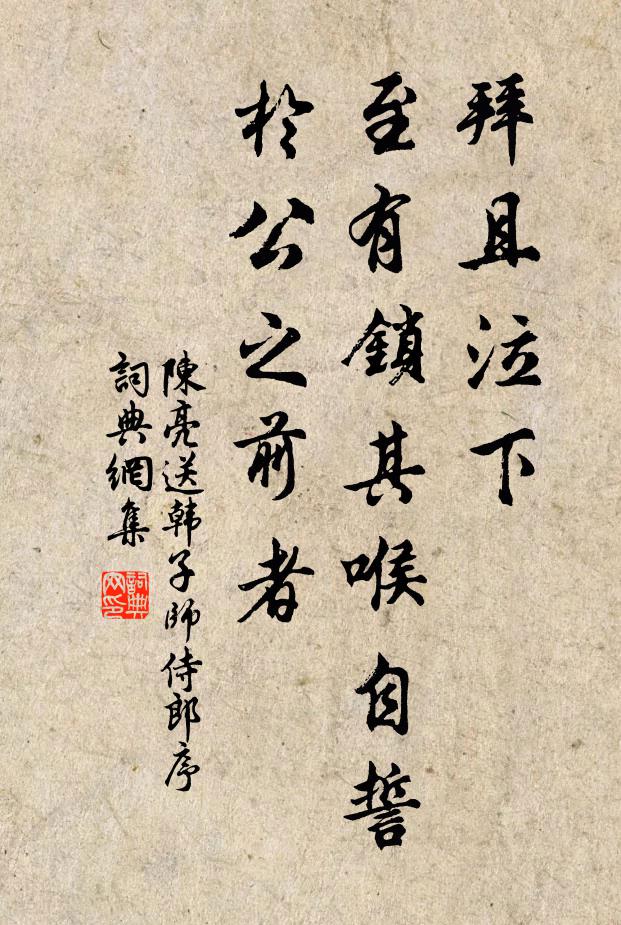 拜且泣下
至有鎖其喉自誓
於公之前者
陳亮送韩子師侍郎序
詞典網集
詞典
网印